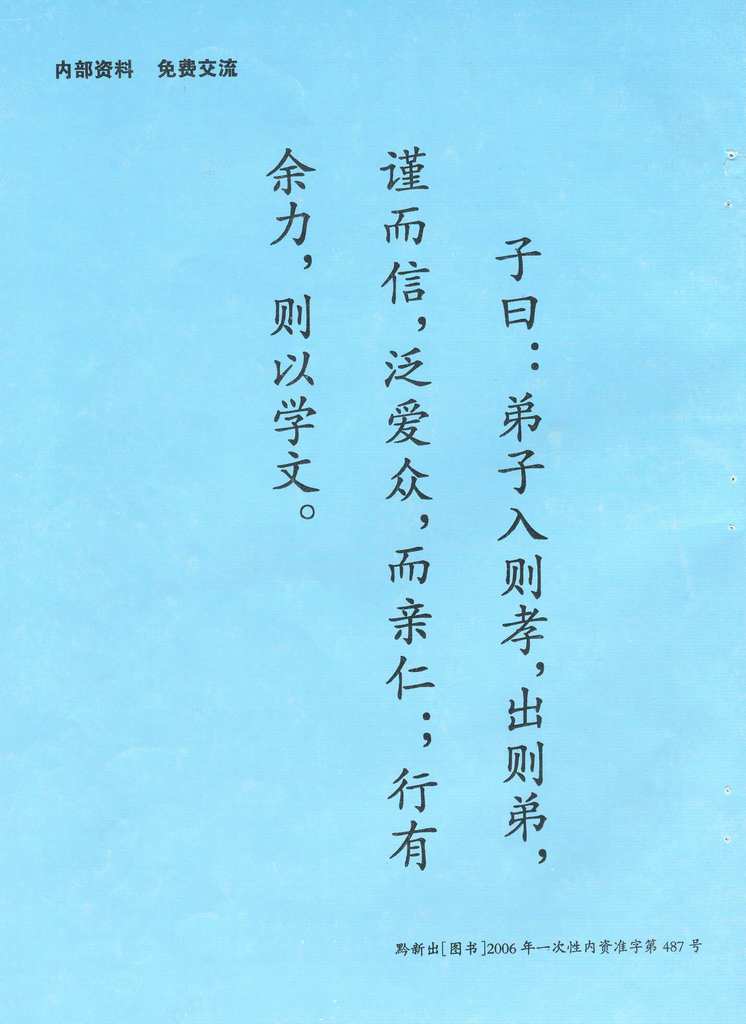 内部资料 免费交流
子曰：弟子入则孝，出则弟，
谨而信，泛爱众，而亲仁；行有
余力，则以学文。
黔新出[图书]2006年一次性内资准字第487号